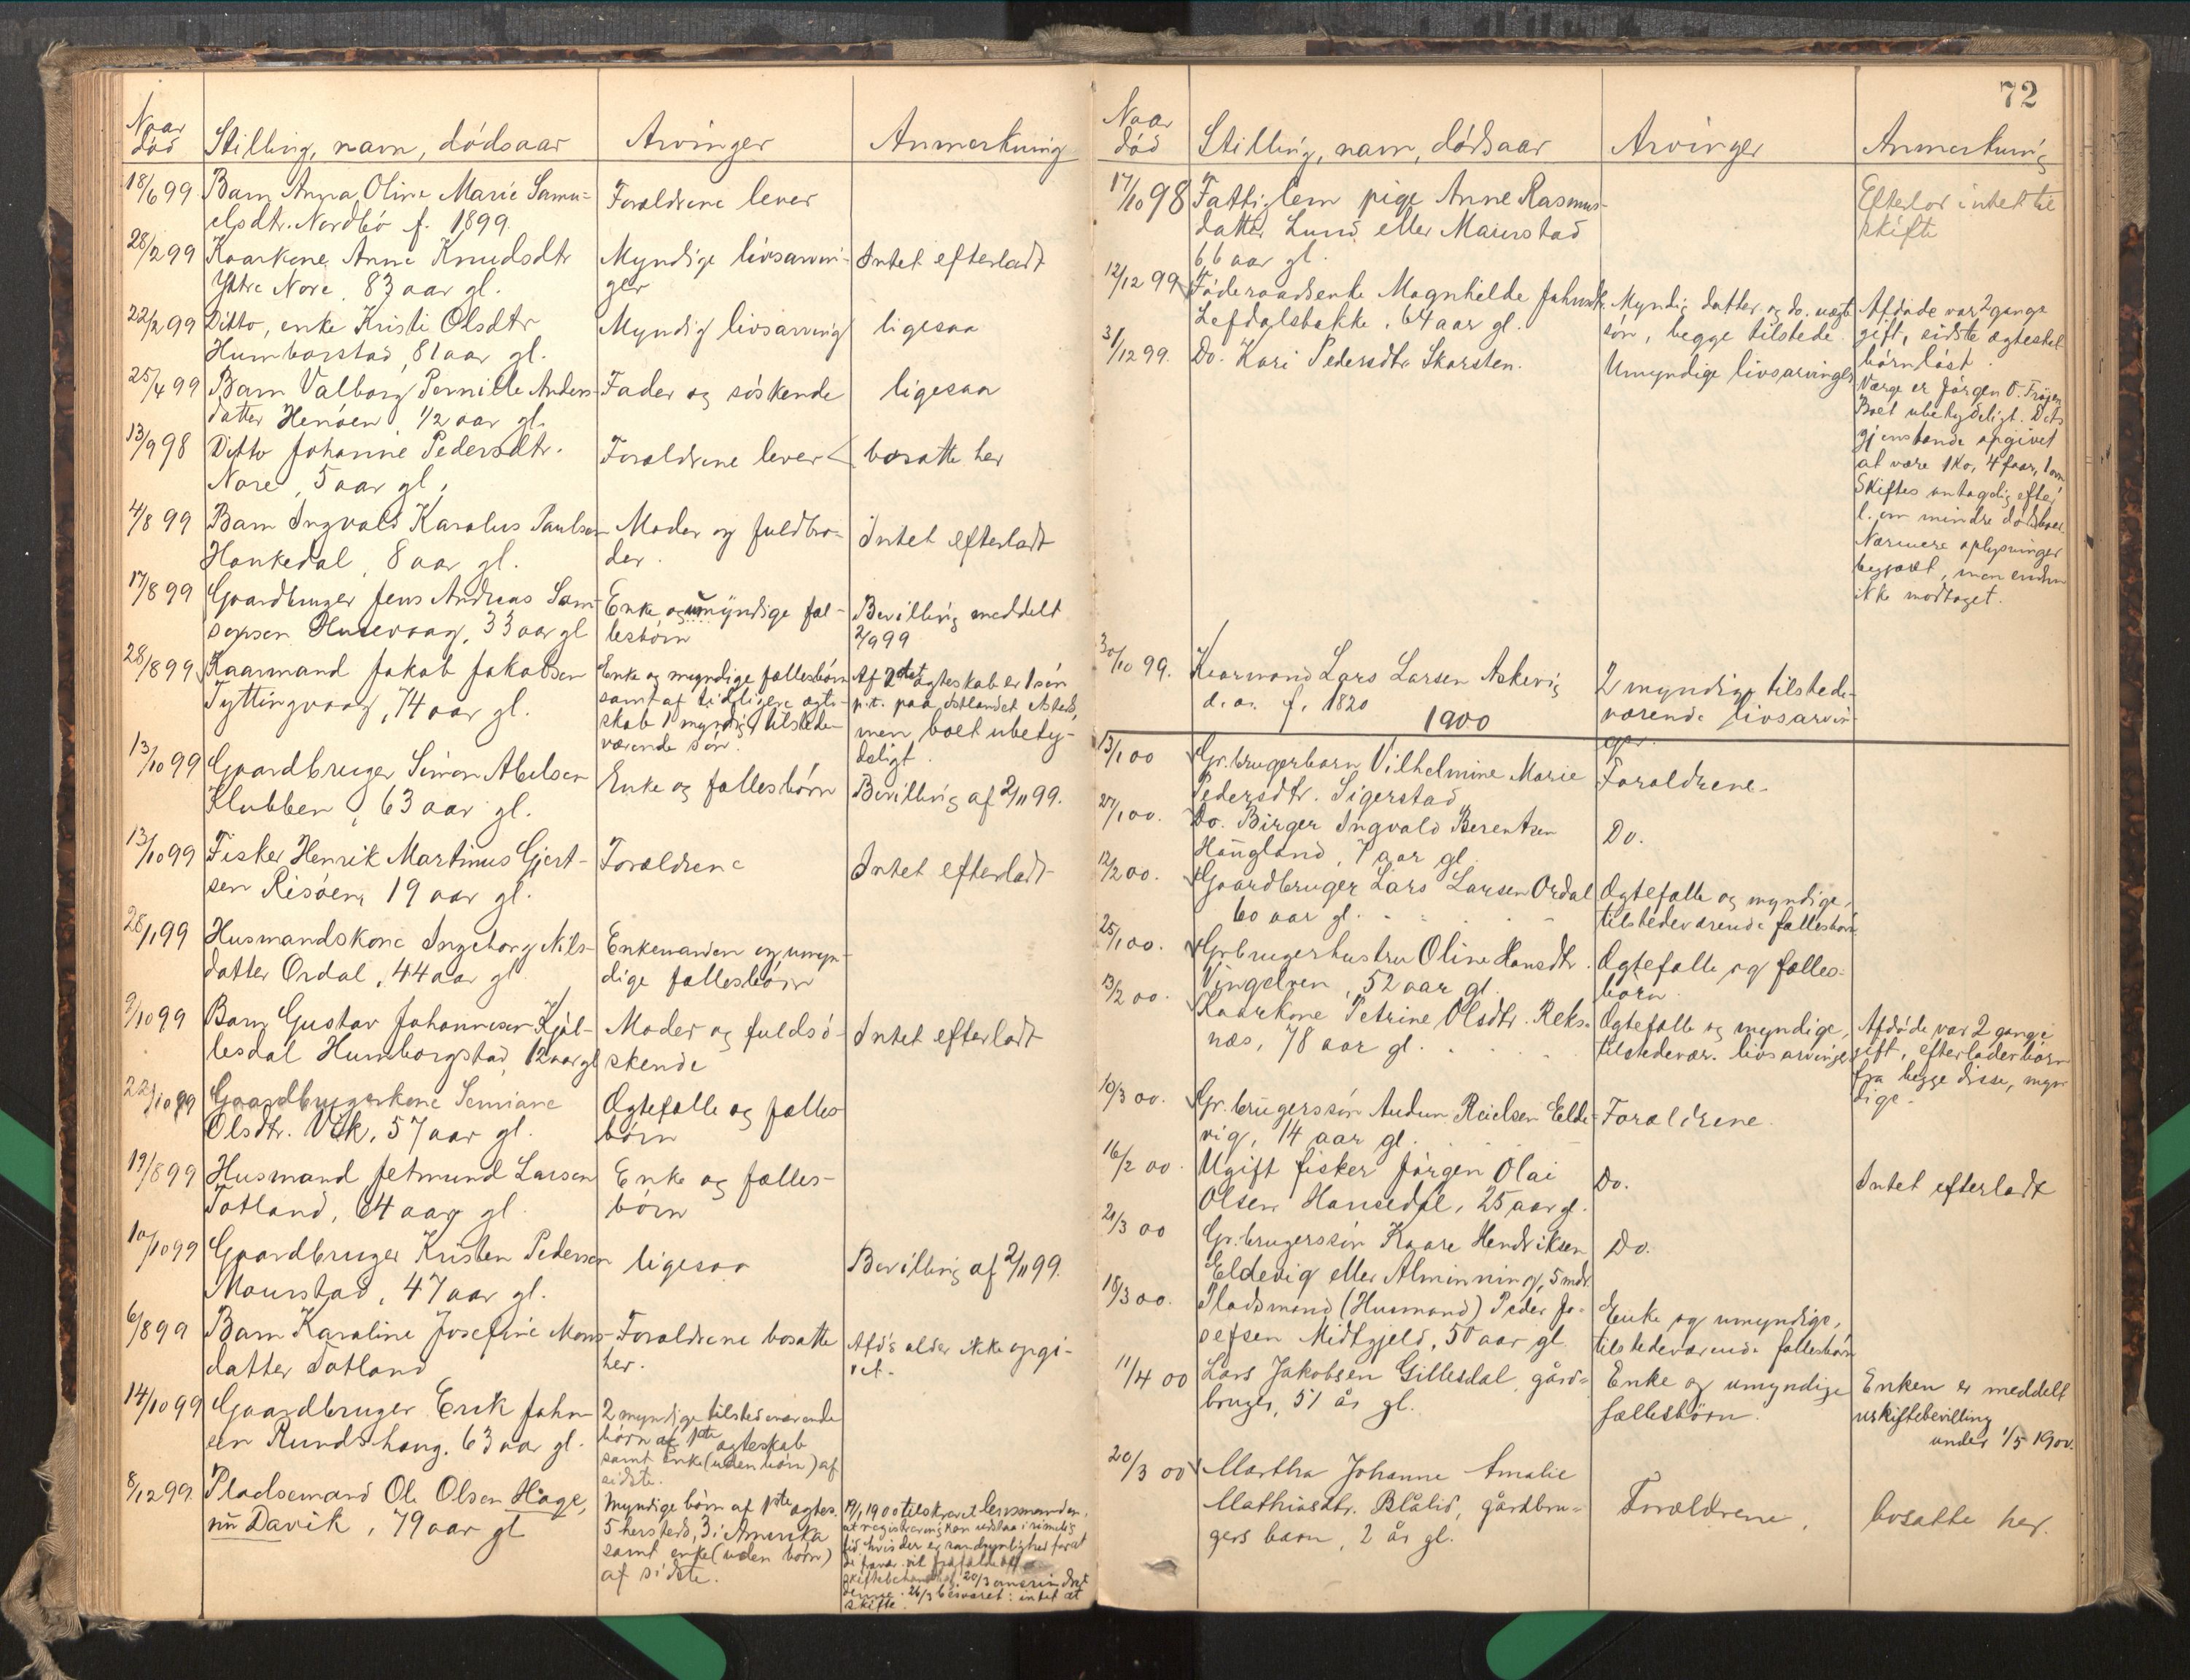 Naar død
Stilling, navn, dødsaar
Arvinger
Anmerkning
18/6 99
Barn Anna Oline Marie Samu-
elsdtr. Nordbö f. 1899.
Forældrene lever
28/2 99
Kaarkone Anne Knudsdtr
Ytre Nore, 83 aar gl.
Myndige livsarvin-
ger
Intet efterladt
22/2 99
Ditto, enke Kristi Olsdtr
Humborstad, 81 aar gl.
Myndig livsarving
ligesaa
25/4 99
Barn Valborg Pernille Anders-
datter Henöen, 1/2 aar gl.
Fader og söskende
ligesaa
13/9 98
Ditto Johanne Pedersdtr.
Nore, 5 aar gl.
Forældrene lever
bosatte her
4/8 99
Barn Ingvald Karolus Paulsen
Haukedal, 8 aar gl.
Moder og fuldbro-
der.
Intet efterladt
17/8 99
Gaardbruger Jens Andreas Sam-
sonsen Husevaag, 33 aar gl
Enke og umyndige fæl-
lesbörn
Bevilling meddelt
2/9 99
28/8 99
Kaarmand Jakob Jakobsen
Tyttingvaag, 74 aar gl.
Enke og myndige fællesbörn
samt af tidligere ægte-
skab 1 myndig tilstede-
værende sön.
Af 2det ægteskab er 1 sön
p.t. paa östlandet
men boet ubety-
deligt.
13/10 99
Gaardbruger Simon Abelsen
Klubben, 63 aar gl.
Enke og fællesbörn
Bevilling af 2/11 99.
13/10 99
Fisker Henrik Martinus Gjert-
sen Risöen, 19 aar gl.
Forældrene
Intet efterladt
28/1 99
Husmandskone Ingeborg Nils-
datter Ordal, 44 aar gl
Enkemanden og umyn-
dige fællesbörn
9/10 99
Barn Gustav Johannesen Kjöl-
lesdal Humborgstad, 12 aar gl
Moder og fuldsö-
skende
Intet efterladt
22/10 99
Gaardbrugerkone Semiane
Olsdtr. Vik, 57 aar gl.
Ægtefælle og fælles
börn
19/8 99
Husmand Jetmund Larsen
Totland, 64 aar gl.
Enke og fælles-
börn
10/10 99
Gaardbruger Kristen Pedersen
Maurstad, 47 aar gl.
ligesaa
Bevilling af 2/11 99.
6/8 99
Barn Karoline Josefine Mons-
datter Totland
Forældrene bosatte
her.
Afd's alder ikke opgi-
vet.
14/10 99
Gaardbruger Erik John-
sen Rundshaug. 63 aar gl.
2 myndige tilstedeværende
börn af 1ste ægteskab
samt enke (uden börn) af
sidste.
8/12 99.
Pladsemand Ole Olsen Hage,
nu Davik, 79 aar gl
Myndige börn af 1ste ægtes.
5 hersteds, 3 i Amerika
samt enke (uden börn)
af sidste.
19/1 1900 tilskrevet lensmanden,
at registrering kan udstaa i rimelig
tid hvis der er sandsynlighed for at
skiftebehandl. 20/3 omerindret
denne. 26/3 besvaret: intet at
skifte.
72
Naar
död
Stilling, navn, dödsaar
Arvinger
Anmerkning
17/10 98
Fattiglem pige Anne Rasmus-
datter Lund eller Maurstad
66 aar gl.
Efterlod intet til
skifte
12/12 99
Föderaadsenke Magnhilde Johnsdtr.
Lefdalsbakke, 64 aar gl.
Myndig datter og do. uægte
sön, begge tilstede.
Afdöde var 2 gange
gift, sidste ægteskab
börnlöst.
31/12 99.
Do. Kari Pedersdtr. Skorsten.
Umyndige livsarvinger
Værge er Jörgen O. Tröjen
Boet ubetydeligt. Dets
gjenstande opgivet
at være 1 ko, 4 faar, 1 ovn
Skiftes antagelig efter
l. om mindre dödsboer.
Nærmere oplysninger
begjært, men endnu
ikke modtaget.
30/10 99.
Kaarmand Lars Larsen Askevig
d. a. f. 1820
2 myndige tilstede-
værende livsarvin-
ger.
1900
13/1 00
Gr.brugerbarn Vilhelmine Marie
Pedersdtr. Sigerstad
Forældrene.
27/1 00.
Do. Birger Ingvald Berentsen
Haugland, 7 aar gl.
Do.
12/2 00.
Gaardbruger Lars Larsen Ordal
60 aar gl.
Ægtefælle og myndige,
tilstedeværende fællesbörn
25/1 00.
Grbrugerhustru Oline Hansdtr.
Vingelven, 52 aar gl.
Ægtefælle og fælles-
börn.
13/2 00.
Kaarkone Petrine Olsdtr. Reks-
næs, 78 aar gl.
Ægtefælle og myndige,
tilstedevær. livsarvinger
Afdöde var 2 gange
gift, efterlader börn
fra begge disse, myn-
dige.
10/3 00.
Gr.brugerssön Audun Reielsen Elde-
vig, 14 aar gl.
Forældrene.
16/2 00.
Ugift fisker Jörgen Olai
Olsen Hansedal, 25 aar gl.
Do.
Intet efterladt
21/3 00
Gr.brugerssön Kaare Hendriksen
Eldevig eller Alminning, 5 mdr.
Do.
18/3 00.
Pladsmand (Husmand) Peder Jo-
sefsen Midtgjeld, 50 aar gl.
Enke og umyndige,
tilstedeværende fællesbörn
11/4 00
Lars Jakobsen Gillesdal, gård-
bruger, 51 år gl.
Enke og umyndige
fællesbörn.
Enken er meddelt
uskiftebevilling
under 1/5 1900.
20/3 00
Martha Johanne Amalie
Mathiasdtr. Blålid, gårdbru-
gers barn, 2 år gl.
Forældrene,
bosatte her.